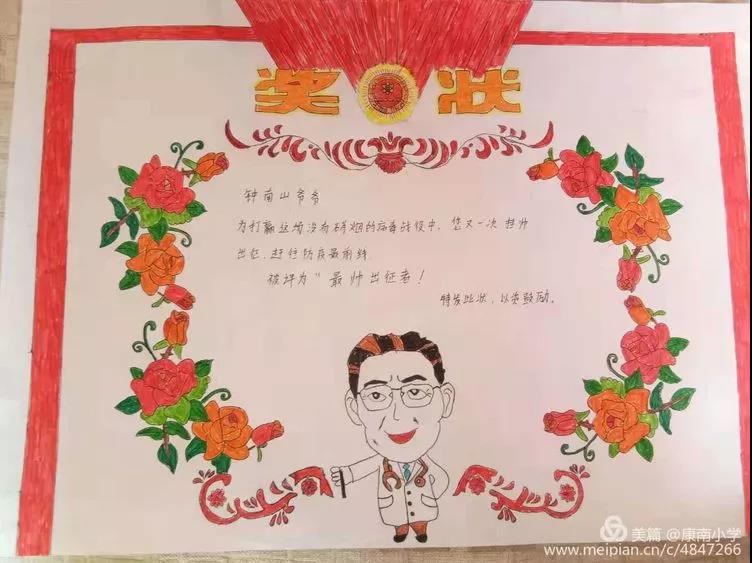 奖状
钟南山爷爷
为打赢这场没有硝烟的病毒战役中，您又一次挂帅
出征，赶往防疫最前线
被评为"最帅出征者！
特发此状，以资鼓励。
美篇 @康南小学
www.meipian.cn/c/4847266